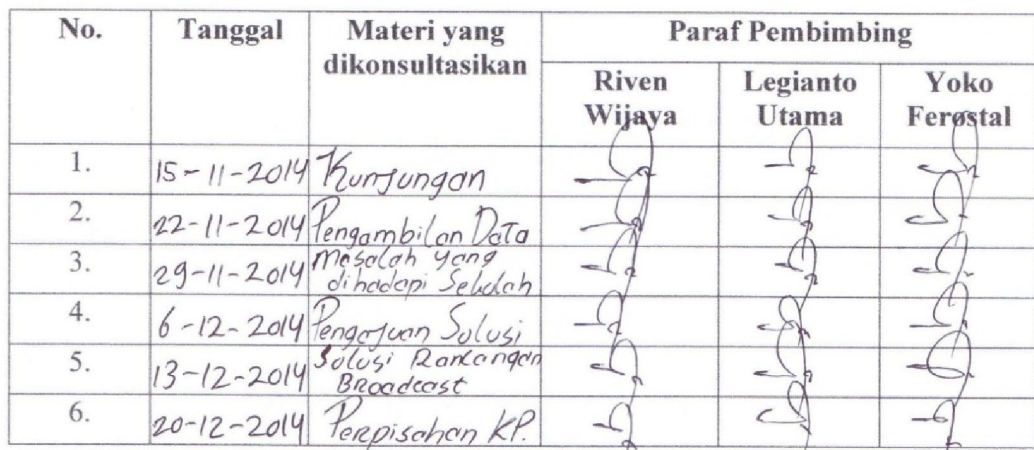 No. Tanggal Materi yang Paraf Pembimbing
dikonsultasikan
Riven Legianto Yoko
Wijaya Utama Ferostal
1. 15-11-2014 Kunjungan
2. 22-11-2014 Pengambilan Data
3. 29-11-2014 Masalah yang
dihadapi Sekolah
4. 6-12-2014 Pengajuan Solusi
5. 13-12-2014 Solusi Rancangan
Broadcast
6. 20-12-2014 Perpisahan KP.